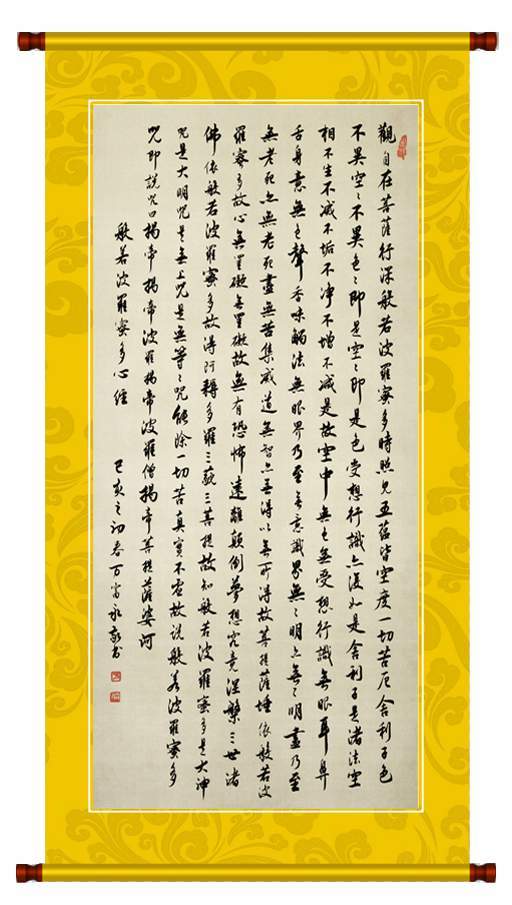 觀自在菩薩行深般若波羅蜜多時照見五蘊皆空度一切苦厄舍利子色
不異空〻不異色〻即是空〻即是色受想行識亦復如是舍利子是諸法空
相不生不滅不垢不淨不增不減是故空中無色無受想行識無眼耳鼻
舌身意無色聲香味觸法無眼界乃至無意識界無〻明亦無〻明盡乃至
無老死亦無老死盡無苦集滅道無智亦無得以無所得故菩提薩埵依般若波
羅蜜多故心無罣礙無罣礙故無有恐怖遠離顛倒夢想究竟涅槃三世諸
佛依般若波羅蜜多故得阿耨多羅三藐三菩提故知般若波羅蜜多是大神
咒是大明咒是無上咒是無等〻咒能除一切苦真實不虛故說般若波羅蜜多
咒即說咒曰揭帝揭帝波羅揭帝波羅僧揭帝菩提薩婆訶
般若波羅蜜多心經
己亥之初春